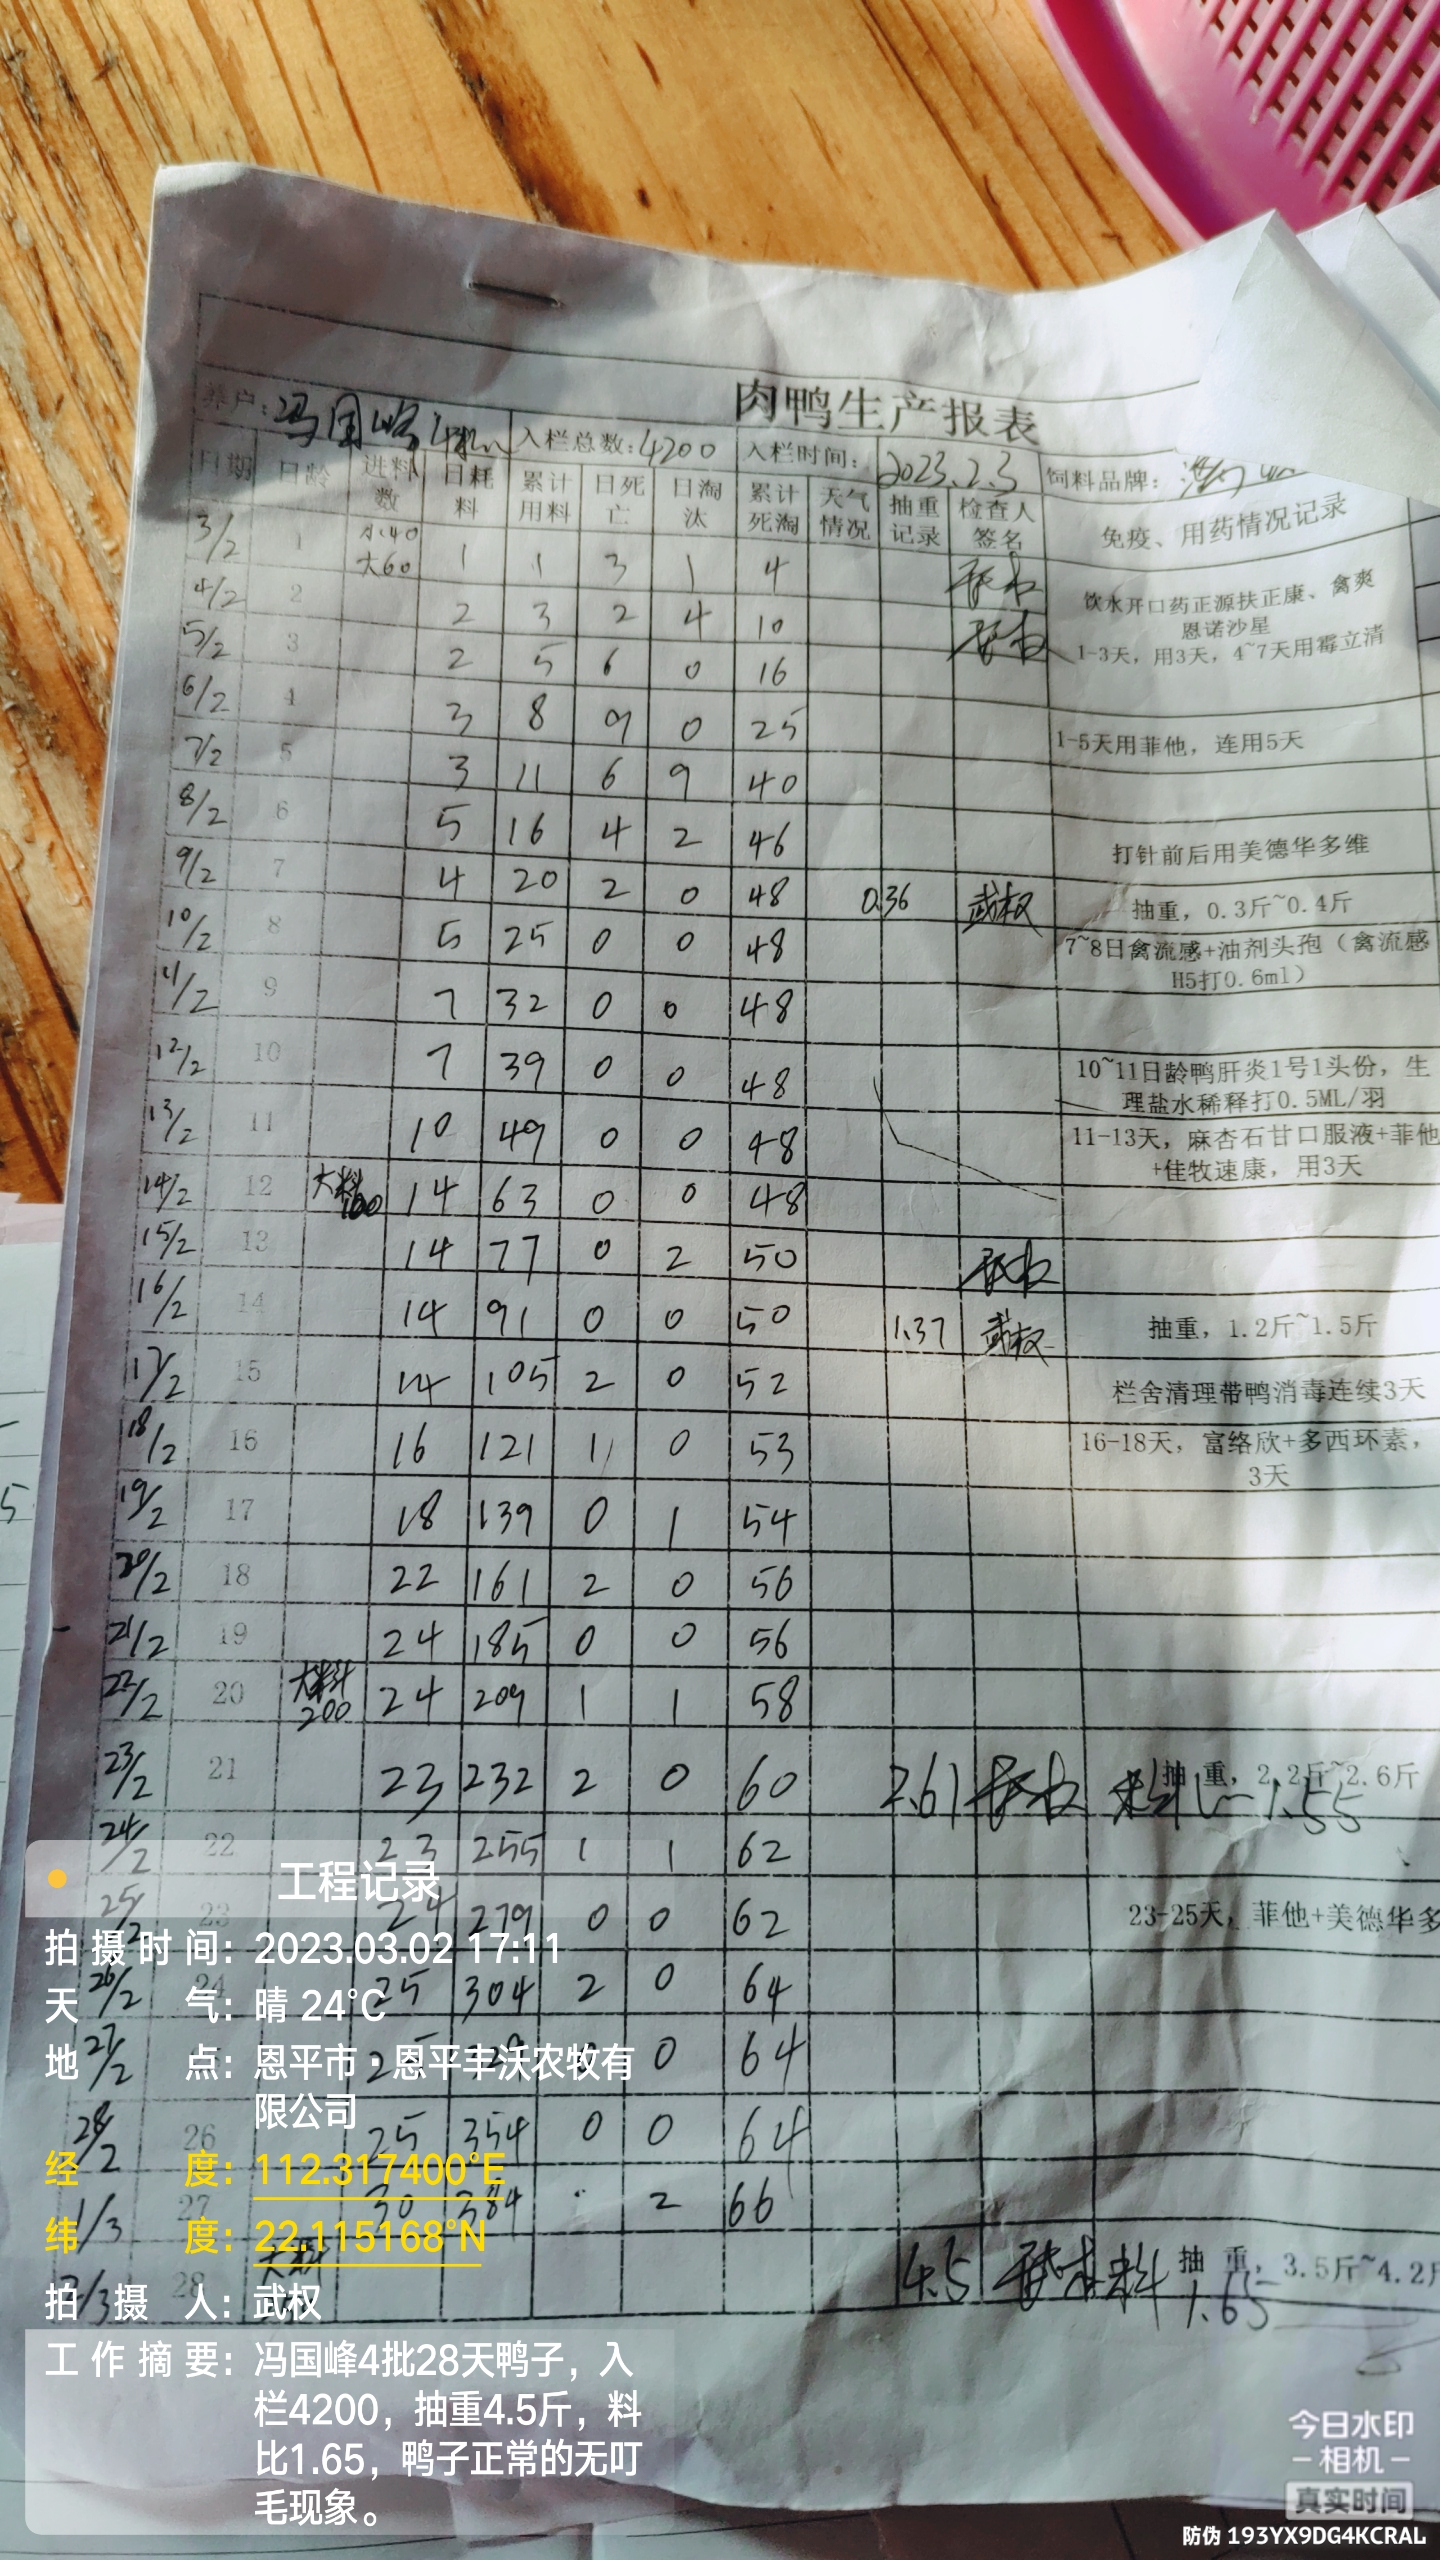 肉鸭生产报表
养户: 冯国峰 入栏总数: 4200 入栏时间: 2023.2.3 饲料品牌:
日期 日龄 进料数 日耗料 累计用料 日死亡 日淘汰 累计死淘 天气情况 抽重记录 检查人签名 免疫、用药情况记录
3/2 1 小40 大60 1 1 3 1 4 武权 饮水开口药正源扶正康、禽爽
恩诺沙星
4/2 2 2 3 2 4 10 武权 1-3天，用3天，4~7天用霉立清
5/2 3 2 5 6 0 16
6/2 4 3 8 9 0 25 1-5天用菲他，连用5天
7/2 5 3 11 6 9 40
8/2 6 5 16 4 2 46 打针前后用美德华多维
9/2 7 4 20 2 0 48 0.36 武权 抽重，0.3斤~0.4斤
10/2 8 5 25 0 0 48 7~8日禽流感+油剂头孢（禽流感
H5打0.6ml）
11/2 9 7 32 0 0 48
12/2 10 7 39 0 0 48 10~11日龄鸭肝炎1号1头份，生
理盐水稀释打0.5ML/羽
13/2 11 10 49 0 0 48 11-13天，麻杏石甘口服液+菲他
+佳牧速康，用3天
14/2 12 大料100 14 63 0 0 48
15/2 13 14 77 0 2 50 武权
16/2 14 14 91 0 0 50 1.37 武权 抽重，1.2斤~1.5斤
17/2 15 14 105 2 0 52 栏舍清理带鸭消毒连续3天
18/2 16 16 121 1 0 53 16-18天，富络欣+多西环素，
3天
19/2 17 18 139 0 1 54
20/2 18 22 161 2 0 56
21/2 19 24 185 0 0 56
22/2 20 大料200 24 209 1 1 58
23/2 21 23 232 2 0 60 2.61 武权 抽重，2.2斤~2.6斤
料比1.55
24/2 22 23 255 1 1 62
25/2 23 24 279 0 0 62 23-25天，菲他+美德华多
26/2 24 25 304 2 0 64
27/2 0 64
28/2 26 25 354 0 0 64
1/3 27 30 384 2 66
2/3 28 大料 4.5 武权 抽重，3.5斤~4.2斤
料 1.65
工程记录
拍摄时间: 2023.03.02 17:11
天气: 晴 24℃
地点: 恩平市·恩平丰沃农牧有
限公司
经度: 112.317400°E
纬度: 22.115168°N
拍摄人: 武权
工作摘要: 冯国峰4批28天鸭子，入
栏4200，抽重4.5斤，料
比1.65，鸭子正常的无叮
毛现象。
今日水印
-相机-
真实时间
防伪 193YX9DG4KCRAL